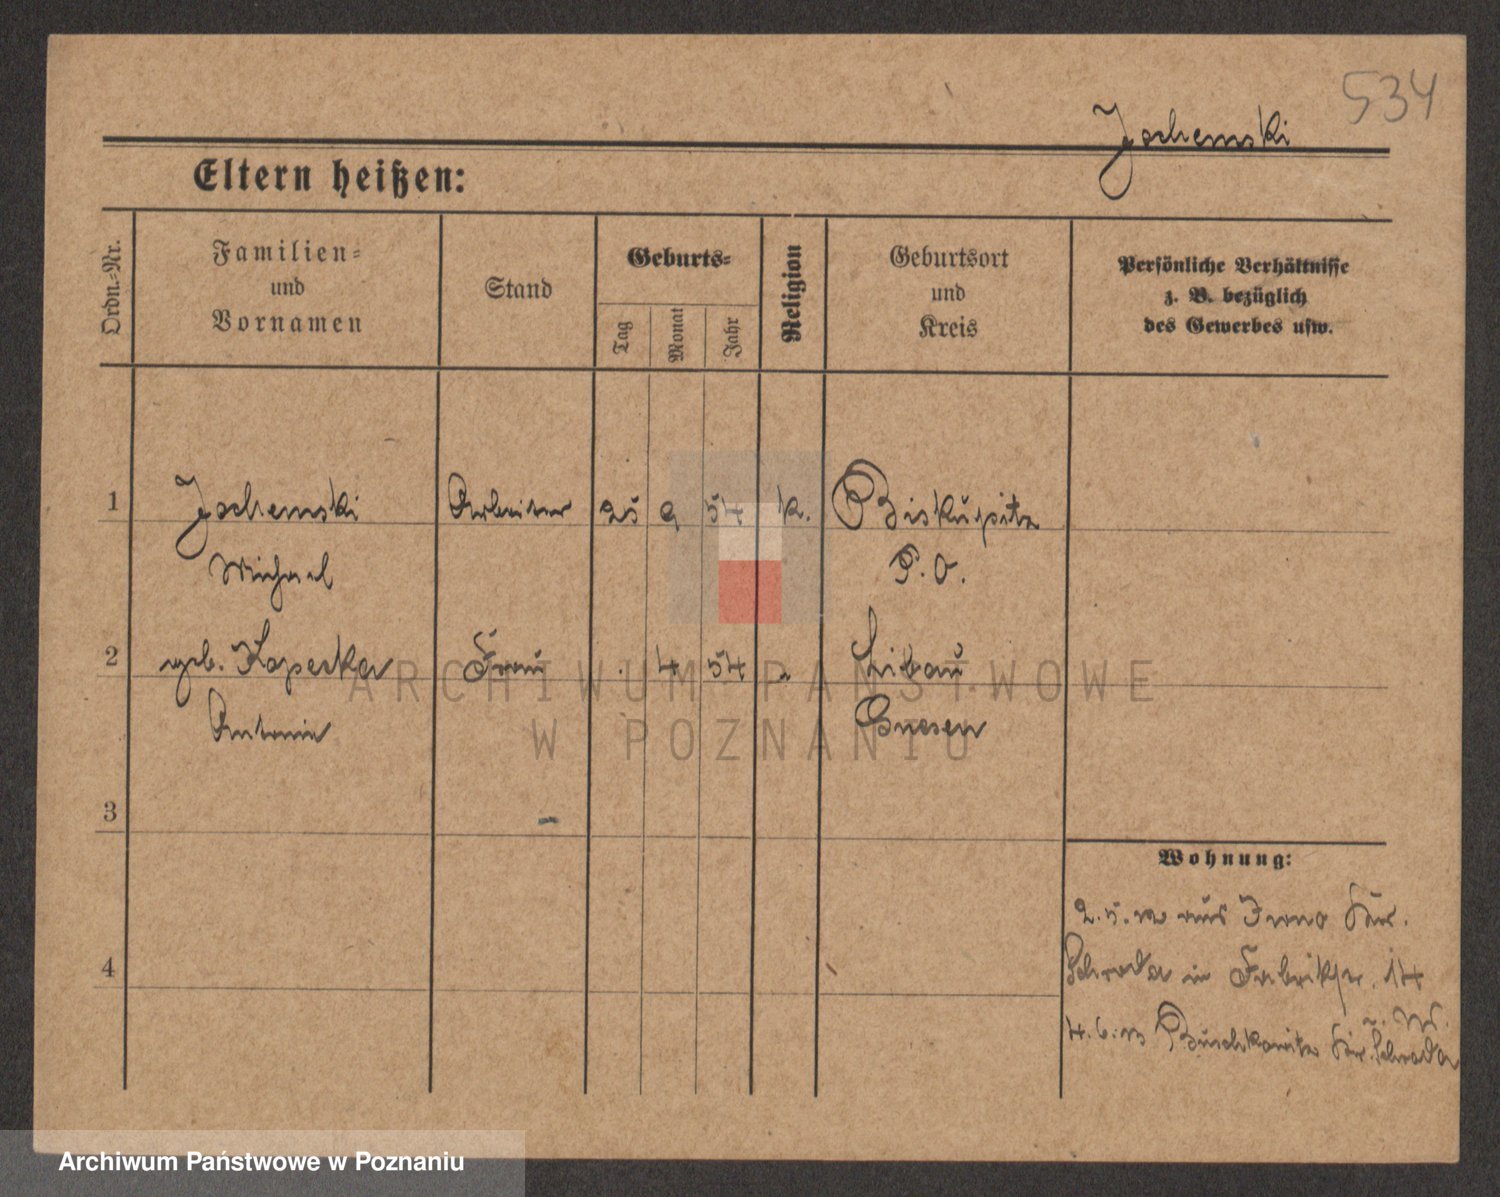 534
Jochemski
Eltern heißen:
Ordn.-Nr.
Familien-
und
Vornamen
Stand
Geburts-
Tag
Monat
Jahr
Religion
Geburtsort
und
Kreis
Persönliche Verhältnisse
z. B. bezüglich
des Gewerbes usw.
1
Jochemski Arbeiter 25 9 54 k. Biskupitz
Michael P. O.
2
geb. Kaperka Frau 4 54 Libau
Antonie Gnesen
3
Wohnung:
2. 5. aus Krr.
Schroda in Fabrikstr. 14
4
4. 6. Krr. Schroda
ARCHIWUM PAŃSTWOWE
W POZNANIU
Archiwum Państwowe w Poznaniu